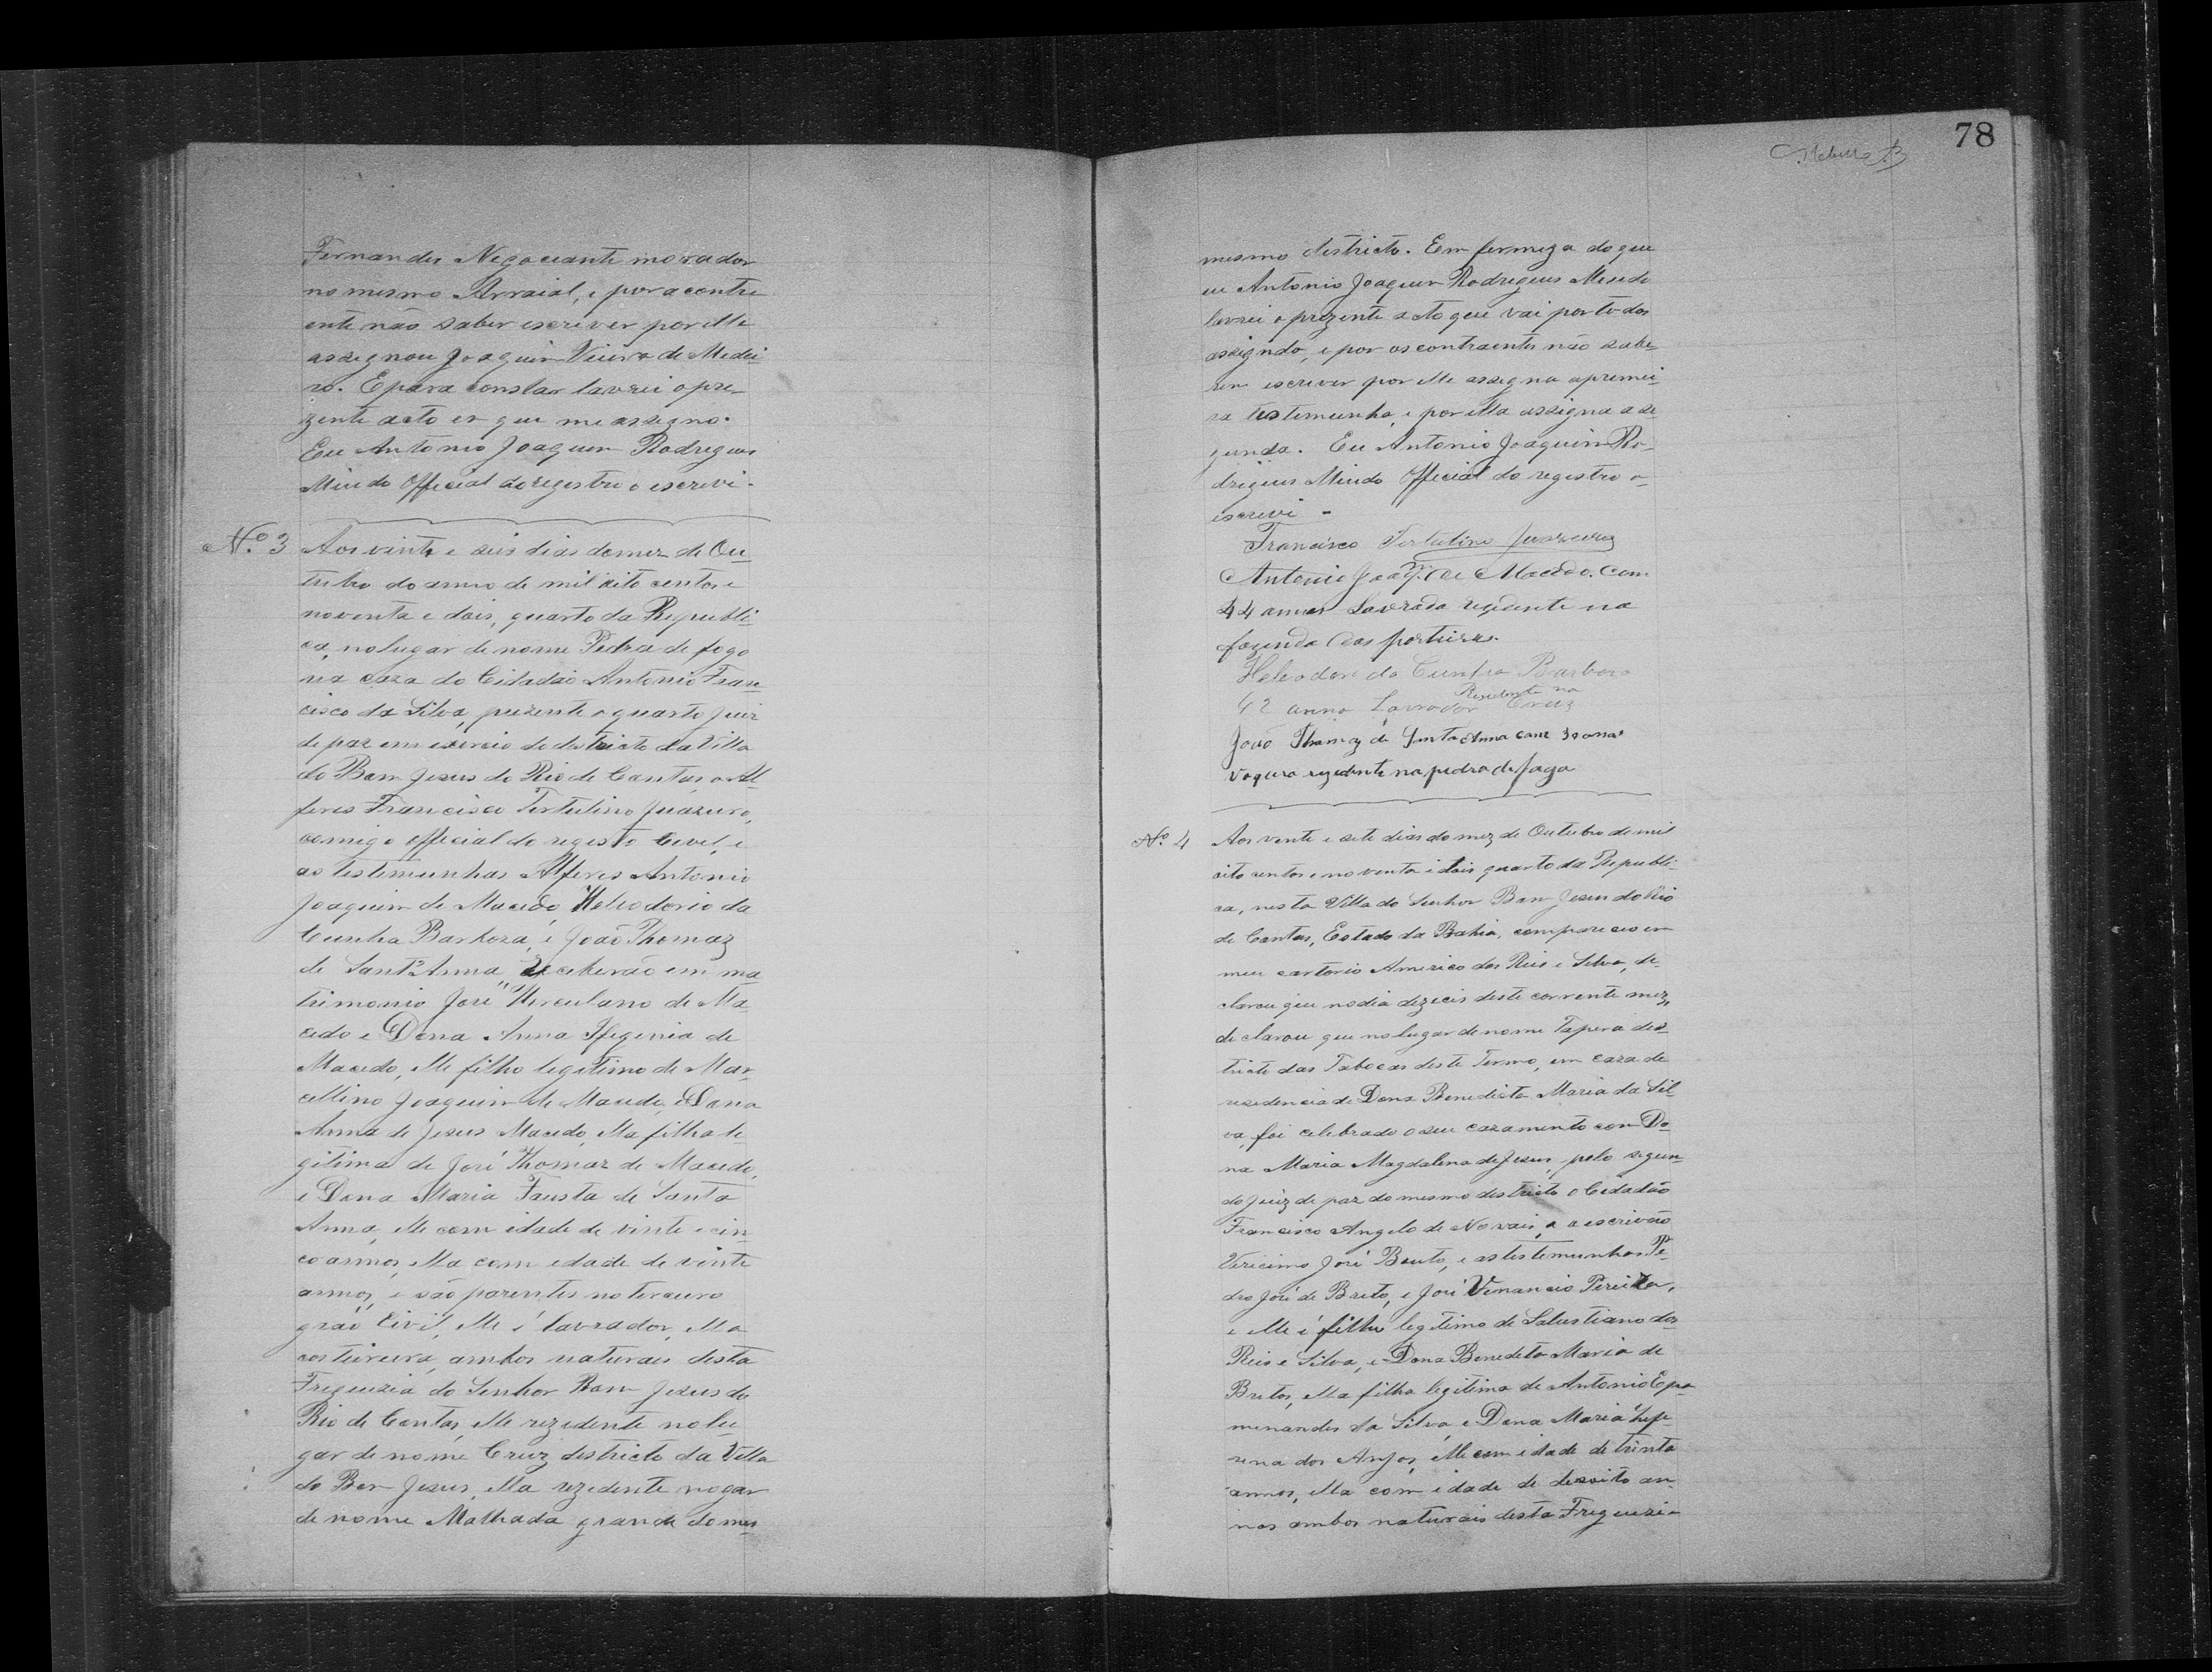 Fernandes Negociante morador
no mesmo Arraial, e por a contra
ente não saber escrever por ella
assegnou Joaquim Vieira de Medei
ro. E para constar lavrei o pre-
zente acto en que me assegno.
Eu Antonio Joaquim Rodregues
Official do registro o escrevi.
Nº 3 Aos vinte e seis dias do mez de Ou
tubro do anno de mil oito centos e
noventa e dois, quarto da Republi
ca, no lugar de nome Pedra de fogo
na caza do Cidadão Antonio Fran
cisco da Silva, prezente o quarto juiz
de paz em exercio do districto da Villa
do Bom Jesus do Rio de Contas, o Al
feres Francisco Tertulino Juazeiro,
comigo official do registo Civel, e
as testemunhas Alferes Antonio
Joaquim de Macedo, Heliodorio da
Cunha Barboza, e João Thomaz
de Sant'Anna, receberão em ma
trimonio José Herculano de Ma
cedo e Dona Anna Ifigenia de
Macedo, elle filho legitimo de Mar
cellino Joaquim de Macedo, e Dona
Anna de Jesus Macedo, ella filha le
gitima de José Thomaz de Macedo,
e Dona Maria Fausta de Santa
Anna, elle com idade de vinte e cin
co annos, ella com edade de vinte
annos, e são parentes no terceiro
gráo Civil, elle é lavrador, ella
costureira, ambos naturais desta
Freguezia do Senhor Bom Jesus do
Rio de Contas, elle rezidente no lu
gar de nome Cruz districto da Villa
do Bom Jesus, ella rezedente no gar
de nome Malhada grande do mes
78
mesmo districto. E em fermeza do que
eu Antonio Joaquim Rodregues
lavrei o prezente acto que vai por todos
assigndo, e por os contraentes não sabe
rem escrever por elle assegna a premei
ra testemunha, e por ella assigna a se
gunda. Eu Antonio Joaquim Ro-
drigues Official do registro o
escrevi -
Francisco Tertulino Juazeiro
Antonio Joaqm de Macedo. Com
44 annos Lavrador rezidente na
fazenda das porteiras.
Heliodoro da Cunha Barboza
42 anno Lavrador Rezidente na Cruz
João Thomaz de Santa Anna com annos
vaqueiro rezedente na pedra de fogo
Nº 4 Aos vente e sete dias do mez de Outubro de mil
oito centos e noventa e dois quarto da Republi
ca, nesta Villa do Senhor Bom Jesus do Rio
de Contas, Estado da Bahia, compareceo em
meu cartorio Americo dos Reis e Silva, de-
clarou que no dia dezeceis deste corrente mez,
declarou que no lugar de nome Tapera des
tricto das Tabocas deste Termo, em caza de
residencia de Dona Benedicta Maria da Sil
va, foi celebrado o seu cazamento com Do
na Maria Magdalena de Jesus, pelo segun
do juiz de paz do mesmo districto o Cidadão
Francisco Angelo de Novais, e o escrivão
Vericimo José Bento, e as testemunhas Pe-
dro José de Brito, e José Venancio Pereira,
e elle é filho legitimo de Salustiano dos
Reis e Silva, e Dona Benedita Maria de
Britos, ella filha legitima de Antonio Epa
menandes da Silva, e Dona Maria Zefe
rena dos Anjos, elle com idade de trinta
annos, ella com idade de desoito an
nos ambos naturais desta Freguezia